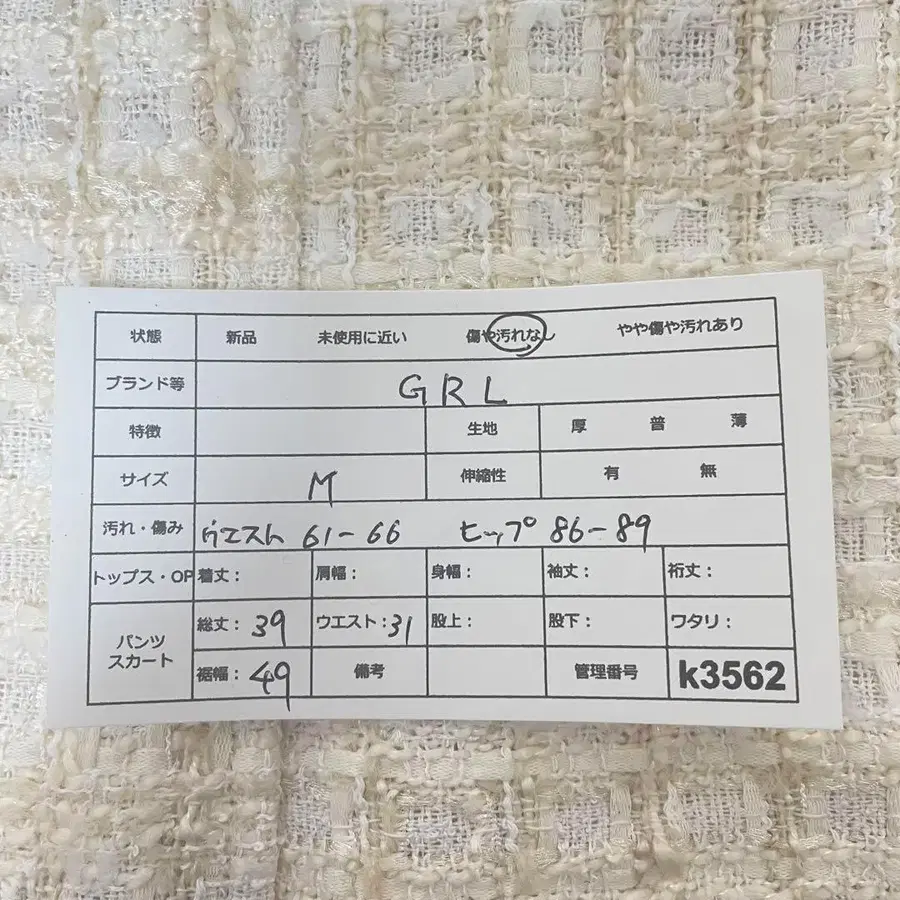 状態 新品 未使用に近い 傷や汚れなし やや傷や汚れあり
ブランド等 GRL
特徴 生地 厚 普 薄
サイズ M 伸縮性 有 無
汚れ・傷み ウエスト 61-66 ヒップ 86-89
トップス・OP 着丈: 肩幅: 身幅: 袖丈: 裄丈:
パンツ スカート 総丈: 39 ウエスト: 31 股上: 股下: ワタリ:
裾幅: 49 備考 管理番号 k3562